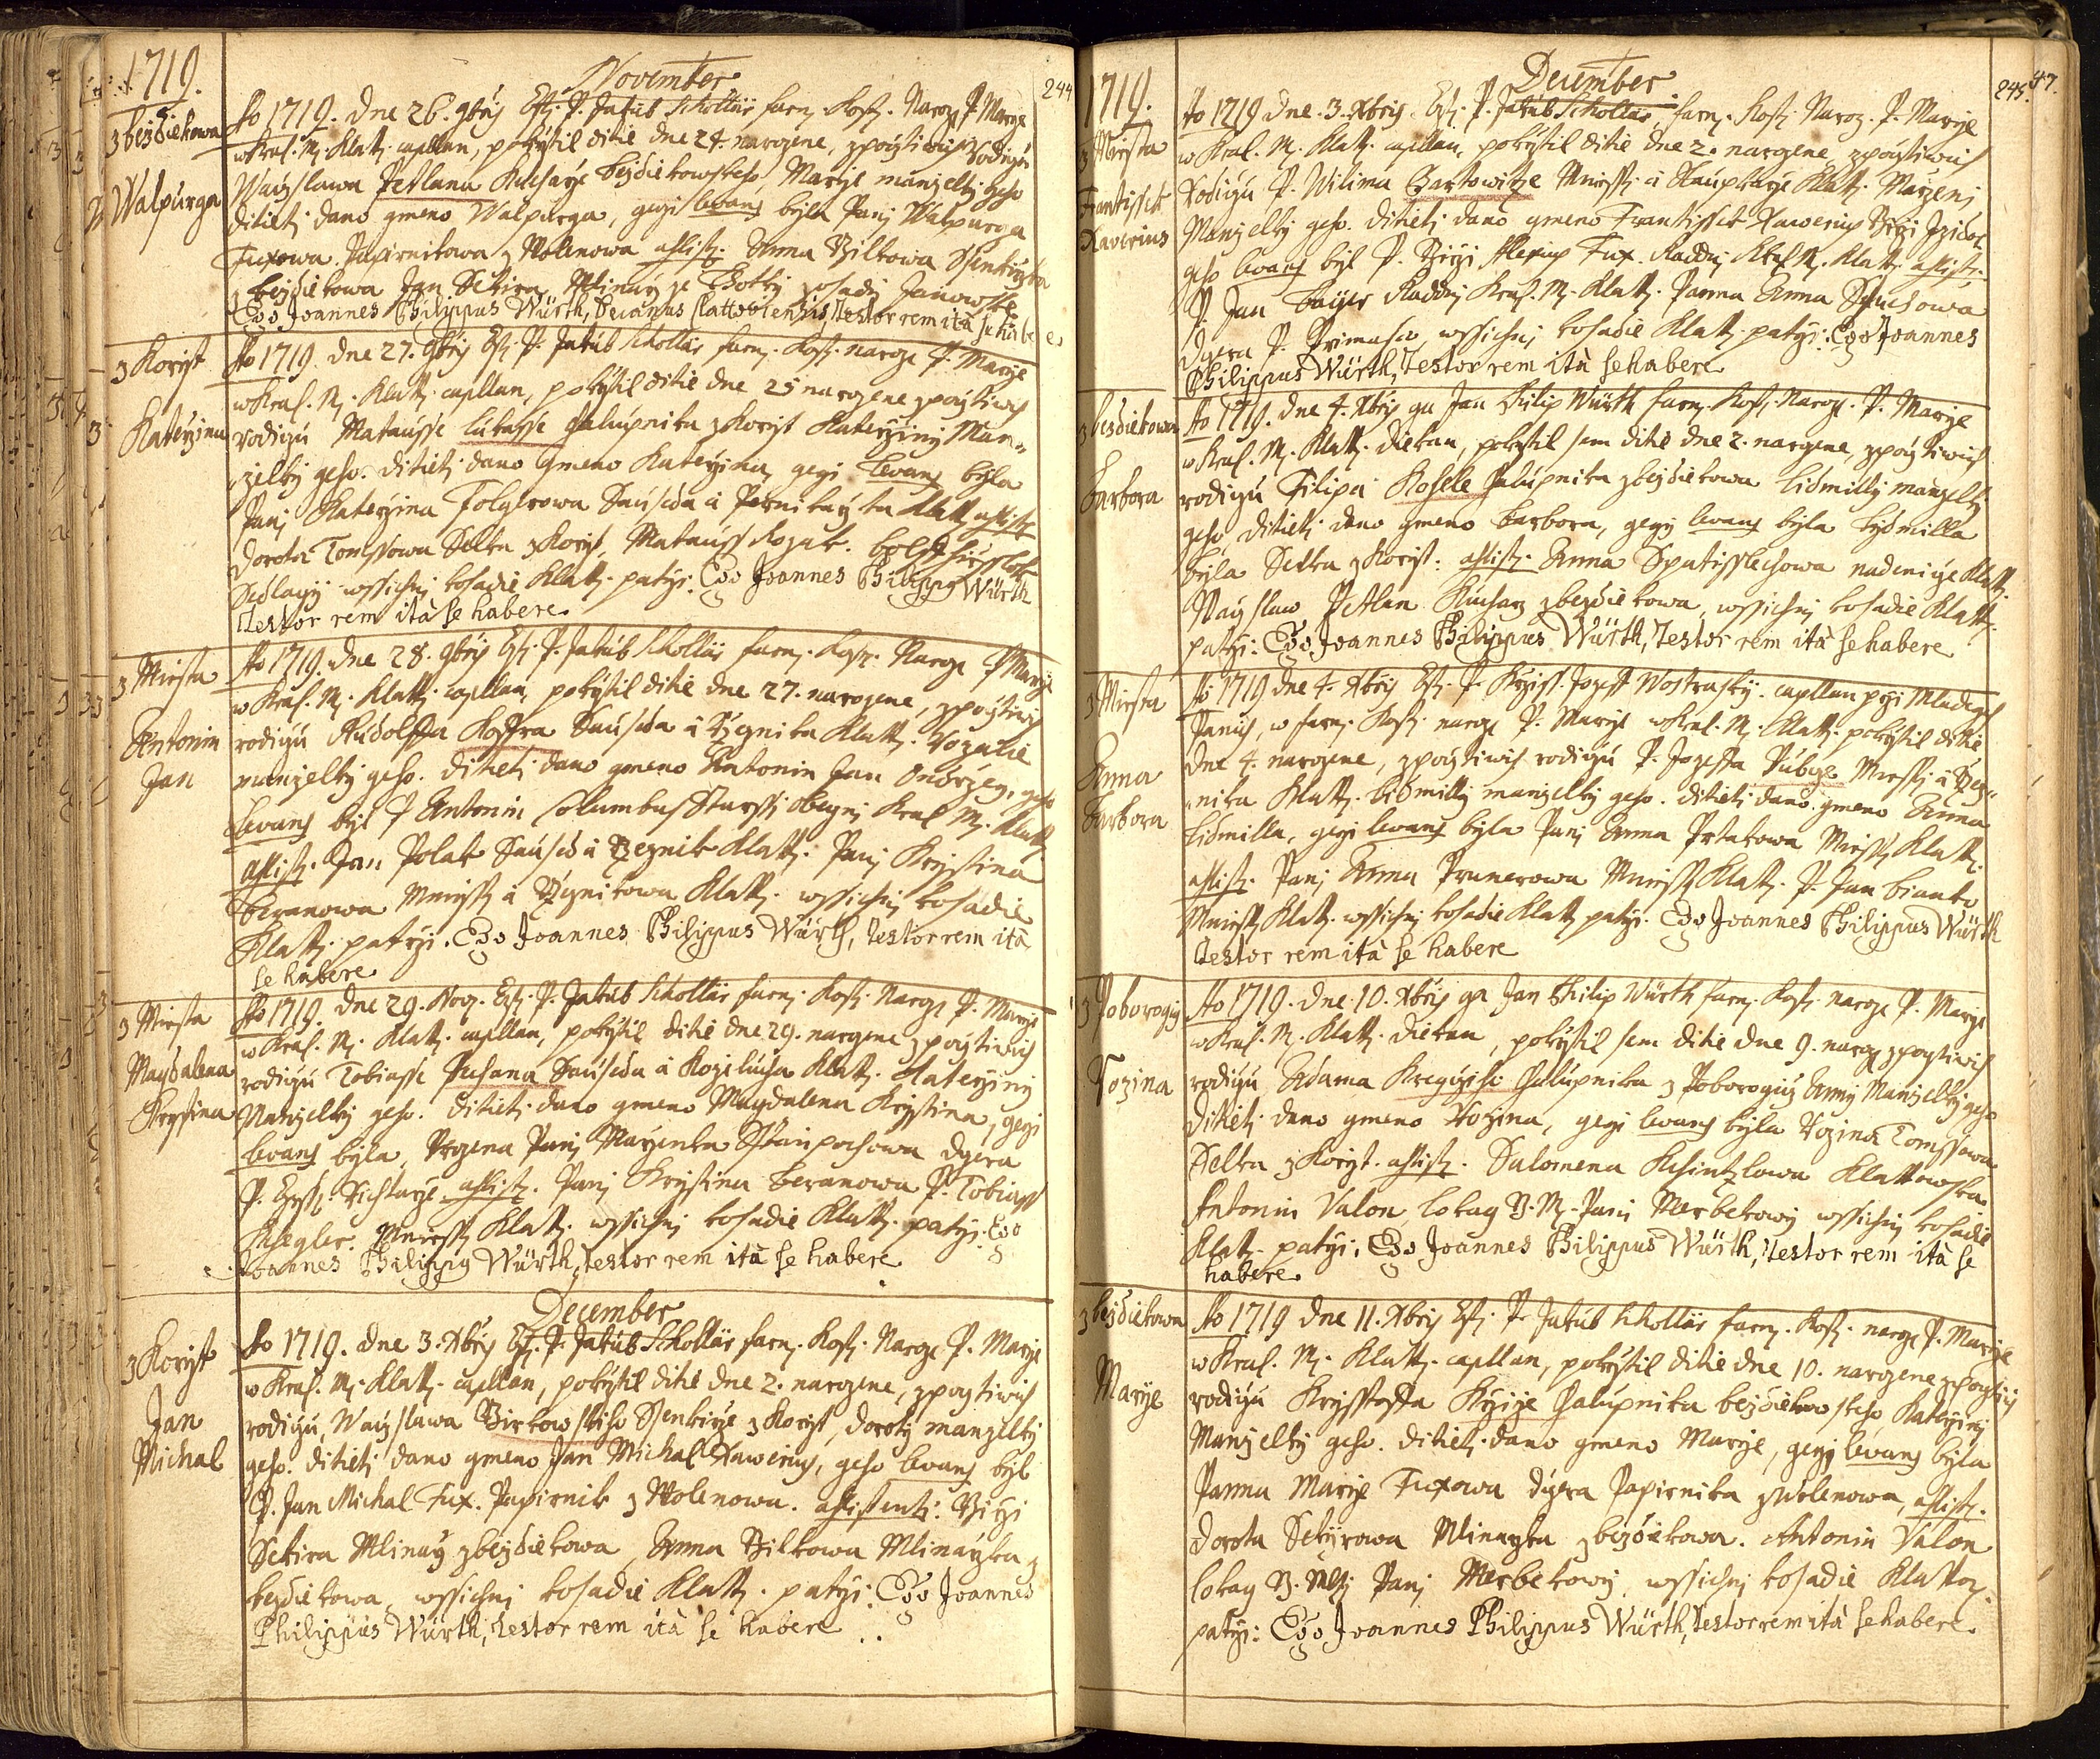 1719.
November
244
z bezdiekowa
Walpurga
Ao 1719. dne 26. 9bris Cti: P. Jakub Schollär farn. Kost. Naroz. P. Marÿe
w Kral. M. Klatt. capllan, pokrztil ditie dne 24. narozene, z pocztiwych Rodiczu
Waczslawa Petlana Kucharze bezdiekowskeho, Marÿe manzelky geho
ditieti dano gmeno Walpurga, gegi lewans byla Pani Walpurga
Fuxowa Papirnikowa z Wolenowa assist. Anna Bilkowa Ssenkirzka
z bezdiekowa Jan Sekira Mlinarz ze Lhotky z osady Janowske
Ego Joannes Philippus Würth, Decanus Klattoviensis, Testor rem ita se habere
z Koryt
Katerzina
Ao 1719. dne 27. 9bris Cti: P. Jakub Schollär farn. Kost. naroze P. Marÿe
w Kral. M. Klatt. capllan, pokrztil ditie dne 25 narozene z pocztiwych
rodiczu Matausse Lukasse Chalupnika z Koryt Katerziny Man-
zelky geho. ditieti dano gmeno Katerzina gegi lewans byla
Pani Katerzina Folgerowa Sauseda a Pernikarzka Klatt. assist.
Dorota Tomssowa Selka z Koryt, Matauss Kozak
Sedlaczy wssichni kosadie Klatt. patrzi. Ego Joannes Philippus Würth
Testor rem ità se habere
z Miesta
Antonin
Jan
Ao 1719. dne 28. 9bris Cti: P. Jakub Schollär farn. Kost. Naroze P. Marÿe
w Kral. M. Klatt. capllan, pokrztil ditie dne 27. narozene, z pocztiwych
rodiczu Rudolffa Kostra Sauseda a Rzeznika Klatt. Rozalie
manzelky geho. ditieti dano gmeno Antonin Jan Ondrzeg, geho
lewans byl P Antonin Columbus Starssi obeczni Kral. M. Klatt.
assist. Jan Polak Saused a Rzeznik Klatt. Pani Krystina
Beranowa Miesst. a Rzeznikowa Klatt. wssichni kosadie
Klatt. patrzi. Ego Joannes Philippus Würth, Testor rem ità
se habere
z Miesta
Magdalena
Krystina
Ao 1719. dne 29. Nov. Cti: P. Jakub Schollär farn. Kost. Naroze P. Marÿe
w Kral. M. Klatt. capllan, pokrztil ditie dne 29. narozene z pocztiwych
rodiczu Tobiasse Puchana Sauseda a Kozeluha Klatt. Katerziny
Manzelky geho. ditieti dano gmeno Magdalena Krystina, gegi
lewans byla, Urozena Pani Maryenka dczera
P. Cysarz. Richtarze assist. Pani Krystina Beranowa P. Tobiass
Miesst. Klatt. wssichni kosadie Klatt. patrzi. Ego
Joannes Philippus Würth, Testor rem ità se habere
December
z Koryt
Jan
Michal
Ao 1719. dne 3. Xbris Cti: P. Jakub Schollär farn. Kost. Naroze P. Marÿe
w Kral. M. Klatt. capllan, pokrztil ditie dne 2. narozene, z pocztiwych
rodiczu, Waczslawa Birkowskeho Ssenkirze z Koryt, Doroty manzelky
geho. ditieti dano gmeno Jan Michal Xawerius, geho lewans byl
P. Jan Michal Fux. Papirnik z Wolenowa. assistenti: Girzi
Sekira Mlinarz z bezdiekowa, Anna Bilkowa Mlinarzka z
bezdiekowa, wssichni kosadie Klatt. patrzi: Ego Joannes
Philippus Würth, Testor rem ità se habere
1719.
December
245. 47.
z Miesta
Frantissek
Xaverius
Ao 1719 dne 3. Xbris. Cti: P. Jakub Schollär, farn. Kost. Naroz. P. Marÿe
w Kral. M. Klatt. capllan, pokrztil ditie dne 2. narozene, z pocztiwych
Rodiczu P. Wilima Bartowitze Miesst. a Klatt. Marzeni
Manzelky geho. ditieti dano gmeno Frantissek Xawerius Girzi Izidor
geho lewans byl P. Girzi Alexius Fux. Raddni Kral. M. Klatt. assist.
P. Jan Baÿer Raddni Kral. M. Klatt. Panna Anna
Dczera P. Primasa, wssichni kosadie Klatt. patrzi: Ego Joannes
Philippus Würth, Testor rem ità se habere
z bezdiekowa
Barbora
Ao 1719. dne 4. Xbris ga Jan Filip Würth farn. Kost. Naroze. P. Marÿe
w Kral. M. Klatt. Diekan, pokrztil sem ditie dne 2. narozene, z pocztiwych
rodiczu Filipa Kosele Chalupnika z bezdiekowa Lidmilly manzelky
geho, ditieti dano gmeno Barbora, gegi lewans byla Lydmilla
byla Selka z Koryt: assist. Anna nadenice Klatt.
Waczslaw Petlan Kucharz z bezdiekowa, wssichni kosadie Klatt.
patrzi: Ego Joannes Philippus Würth, Testor rem ità se habere
z Miesta
Anna
Barbora
Ao 1719 dne 4. Xbris Cti: P. Krysst. Jozeff Wostrusky. capllan przi Mladych
Panich, w farn. Kost. naroze P. Marÿe w Kral. M. Klatt. pokrztil ditie
dne 4. narozene, z pocztiwych rodiczu P. Jozeffa Miesst. a Rzez-
nika Klatt. Lidmilly manzelky geho. ditieti dano gmeno Anna
Lidmilla, gegi lewans byla Pani Anna Ptakowa Miesst. Klatt.
assist. Pani Anna Prunerowa Miesst. Klatt. P. Jan Bianko
Miesst. Klatt. wssichni kosadie Klatt. patrzi. Ego Joannes Philippus Würth
Testor rem ità se habere
z Poborogicz
Rozina
Ao 1719. dne 10. Xbris ga Jan Philip Würth farn. Kost. naroze P. Marÿe
w Kral. M. Klatt. Diekan, pokrztil sem ditie dne 9. naroz. z pocztiwych
rodiczu, Adama Chalupnika z Anny Manzelky geho
Ditieti dano gmeno Rozina, gegi lewans byla Rozina Tomssowa
Selka z Koryt. assist. Salomena Klattowska
Antonin Valon, lokag U. M. Pani Merbekowy wssichni kosadie
Klatt. patrzi. Ego Joannes Philippus Würth, Testor rem ità se
habere
z bezdiekowa
Marÿe
Ao 1719 dne 11. Xbris Cti: P. Jakub Schollär farn. Kost. naroze P. Marÿe
w Kral. M. Klatt. capllan, pokrztil ditie dne 10. narozene z pocztiwych
rodiczu Krysstoffa Chalupnika bezdiekowskeho, Katerziny
Manzelky geho. ditieti dano gmeno Marÿe, gegi lewans byla
Panna Marÿe Fuxowa dczera Papirnika z Wolenowa, assist.
Dorota Sekyrowa Mlinarzka z bezdiekowa. Antonin Valon
lokag Pani Merbekowy, wssichni kosadie Klattow.
patrzi: Ego Joannes Philippus Würth, Testor rem ità se habere.